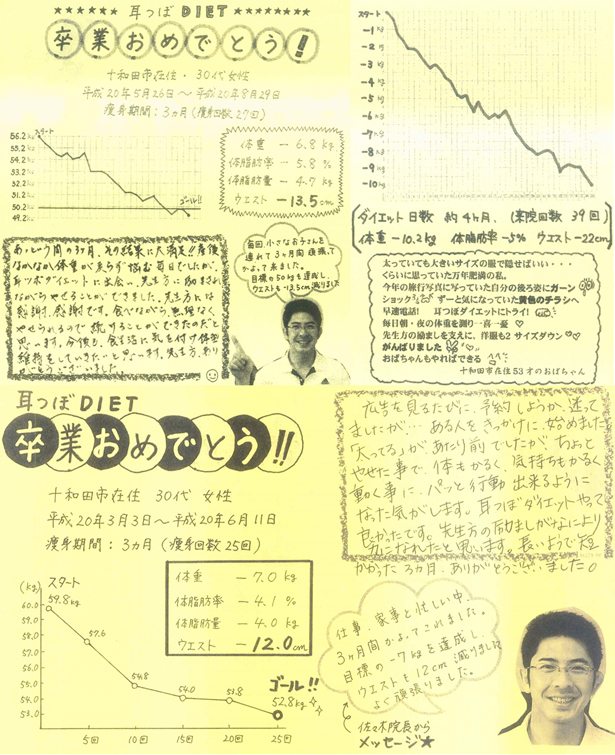 ★★★★★★ 耳つぼ DIET ★★★★★★★★
卒業おめでとう!
十和田市在住・30代女性
平成20年5月26日〜平成20年8月29日
痩身期間:3ヵ月(痩身回数27回)
スタート
56.2kg
55.2
54.2
53.2
52.2
51.2
50.2
49.2
ゴール!!
体重 －6.8kg
体脂肪率 －5.8%
体脂肪量 －4.7kg
ウエスト －13.5cm
あっという間の3ヶ月、その結果に大満足!!産後
なかなか体重が戻らず悩む毎日でしたが、
耳ツボダイエットに出会い、先生方に励まされ
ながらやせることができました。先生方には
感謝、感謝です。食べながら、無理なく
やせられるので続けることができたのだと
思います。今後も、食生活に気を付け体型
維持をしていきたいと思います。先生方、あり
がとうございました。
毎回、小さなお子さんを
連れて3ヶ月間頑張って
かよって来ました。
目標の50kgを達成し、
ウエストも－13.5cm減りました
スタート
－1kg
－2kg
－3kg
－4kg
－5kg
－6kg
－7kg
－8kg
－9kg
－10kg
ダイエット日数 約4ヶ月、(来院回数 39回)
体重－10.2kg 体脂肪率－5% ウエスト－22cm
太っていても大きいサイズの服で隠せばいい・・・
くらいに思っていた万年肥満の私。
今年の旅行写真に写っていた自分の後ろ姿にガーン
ショック ずーと気になっていた黄色のチラシへ
早速電話! 耳つぼダイエットにトライ!
毎日朝・夜の体重を測り一喜一憂♡
先生方の励ましを支えに、洋服も2サイズダウン♡♡
がんばりました
おばちゃんもやればできる
十和田市在住53才のおばちゃん
耳つぼDIET
卒業おめでとう!!
十和田市在住 30代 女性
平成20年3月3日〜平成20年6月11日
痩身期間:3ヵ月(痩身回数25回)
体重 －7.0kg
体脂肪率 －4.1%
体脂肪量 －4.0kg
ウエスト －12.0cm
(kg)
スタート
60.0
59.0
58.0
57.0
56.0
55.0
54.0
53.0
59.8kg
57.6
54.8
54.0
53.8
ゴール!!
52.8kg
5回 10回 15回 20回 25回
広告を見るたびに、予約しようか、迷って
ましたが… ある人をきっかけに、始めました
「太ってる」があたり前でしたが、ちょっと
やせた事で、体もかるく、気持ちもかるく
動く事に、パッと行動出来るように
なった気がします。耳つぼダイエットやって
良かったです。先生方の励ましがなにより
力になれたと思います。長いようで短
かかった3ヵ月、ありがとうございました。
仕事、家事と忙しい中
3ヶ月間かよってこれました。
目標の－7kgを達成し、
ウエストも12cm減りました
よく頑張りました。
佐々木院長から
メッセージ★